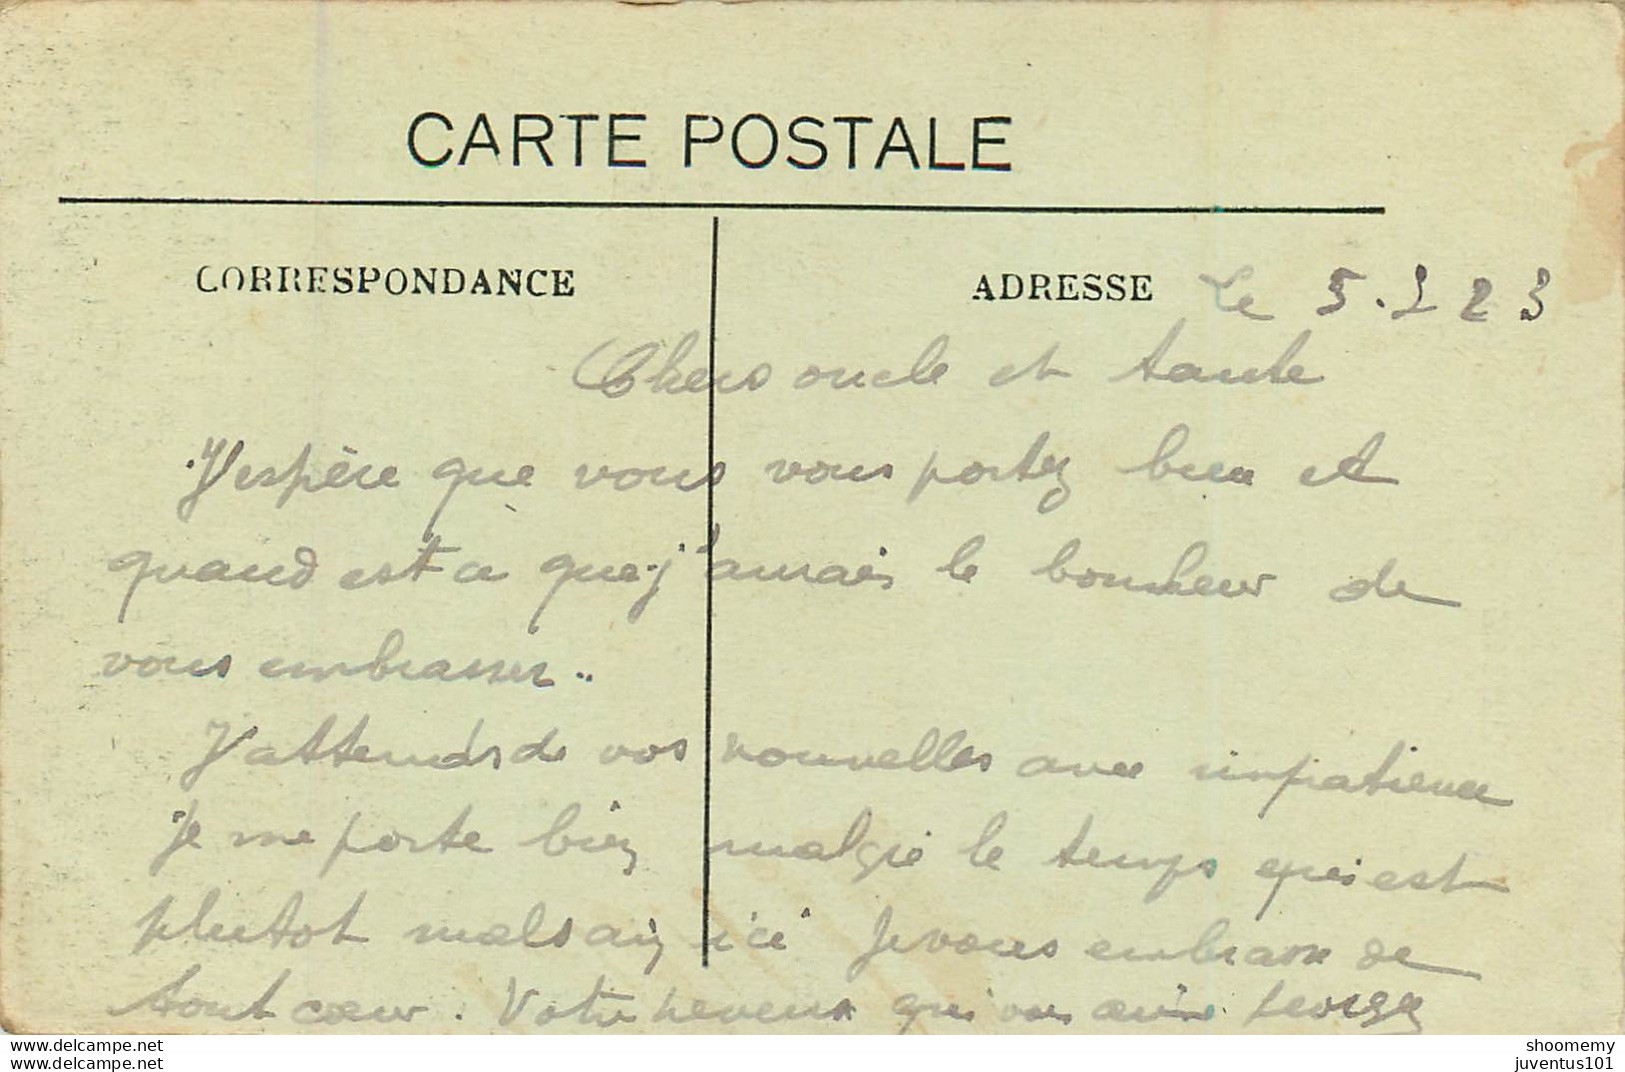 CARTE POSTALE
CORRESPONDANCE
ADRESSE Le 5.2 23
Chers oncle et tante
J'espère que vous vous portez bien et
quand est ce que j'aurais le bonheur de
vous embrasser..
J'attends de vos nouvelles avec impatience
Je me porte bien malgré le temps qui est
plutot malsain ici Je vous embrasse de
tout cœur. Votre neveux qui vous aime Georges
www.delcampe.net
shoomemy
juventus101